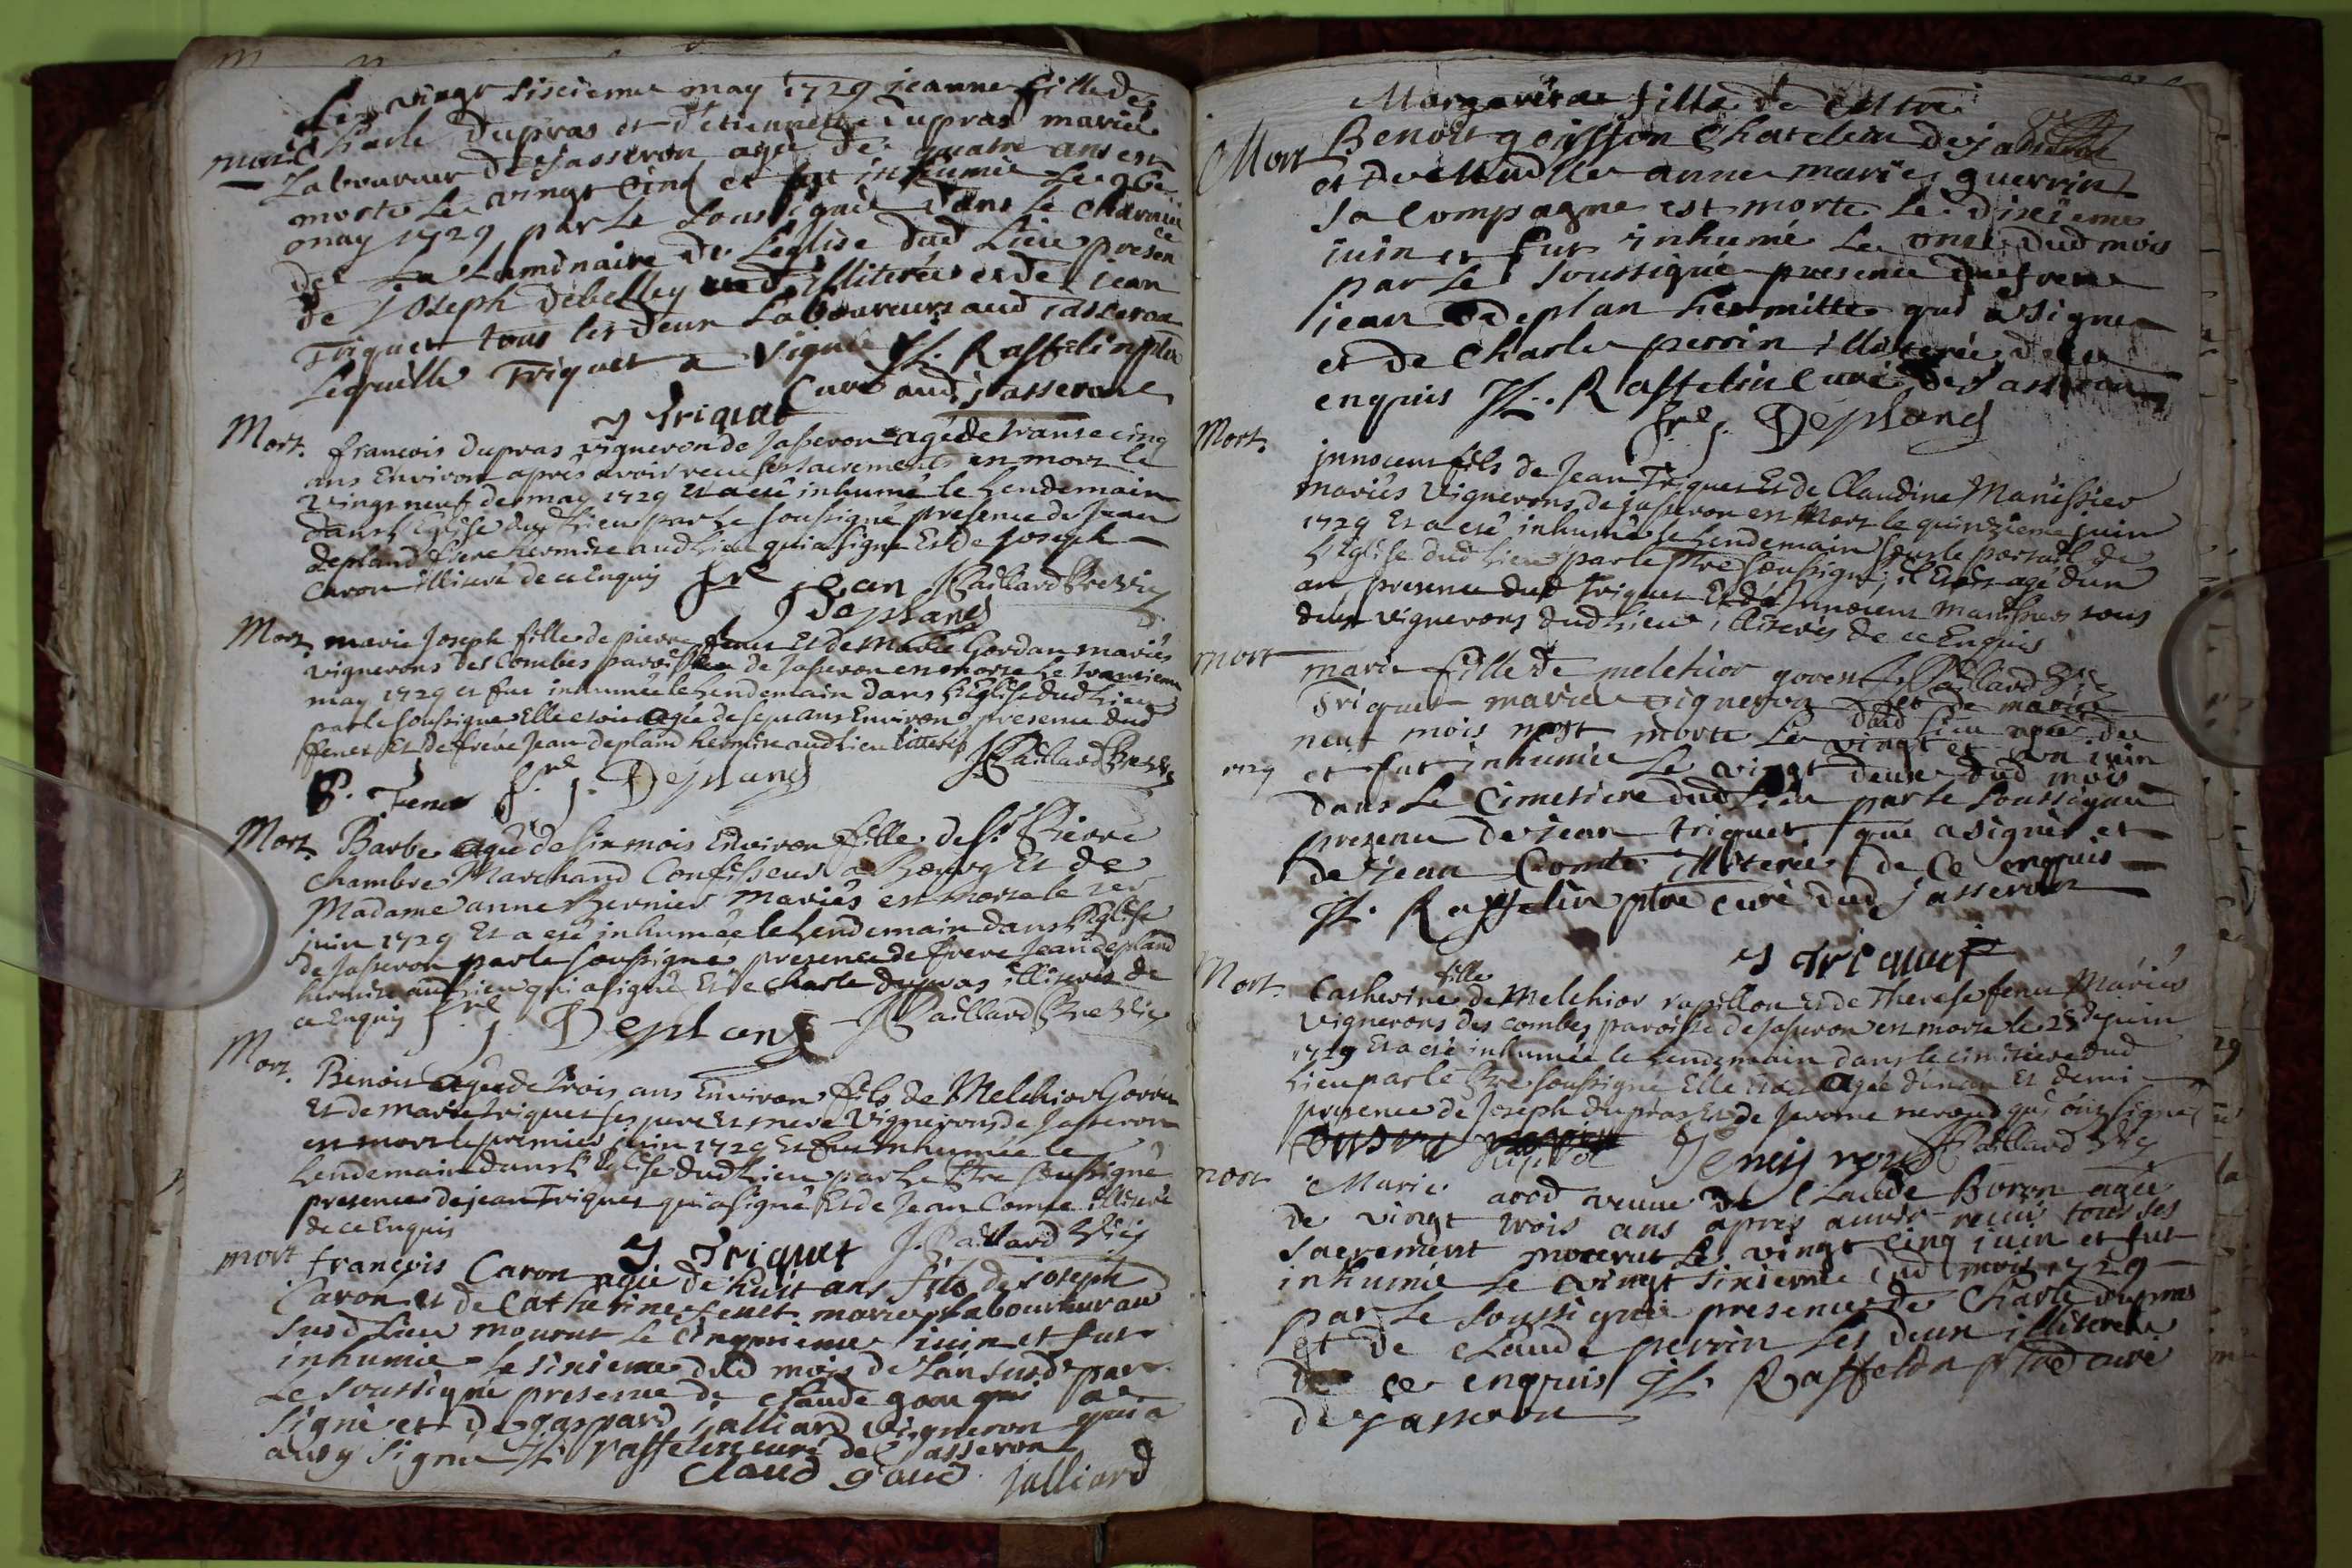 Le vingt sixieme may 1729 jeanne fille de
mort Charle dupras et d'etiennette dupras mariés
Laboureur de Jasseron agée de quatre ans est
morte le vingt cinq et fut inhumée le 26e
may 1729 par le soussigné dans le charnier
de la Luminaire de l'eglise dud Lieu presence
de joseph debelley illiteré et de jean
Triquet tous les deux Laboureurs aud jasseron
Lequelle Triquet a signé JL. Raffelin ptre
Curé aud jasseron
J Triquet
Mort. francois dupras vigneron de Jasseron agé de trante cinq
ans Environ apres avoir receu ses sacrements est mort le
vingt neuf de may 1729 Et a eté inhumé le Lendemain
dans L'Eglise dud Lieu par Le soussigné presence de Jean
depland frere hermite aud Lieu qui a signé Et de joseph
Caron illiteré de ce Enquis fre Jean J Paillard Pre Vic
Deplans
Mort marie Joseph fille de pierre fenet Et de Marie Gordan mariés
vignerons des Combes paroisse de Jasseron est morte Le trantieme
may 1729 et fut inhumée le Lendemain dans L'Eglise dud Lieu
par le soussigné Elle etoit agée de sept ans Environ presence dud
fenet Et de frere Jean depland hermite aud Lieu
P. Fenet fre j. Deplans J Paillard Pre Vic
Mort. Barbe agée de six mois Environ fille de Sr Pierre
Chambre Marchand Confisseur a Bourg Et de
Madame anne Bernier mariés est morte le 2er
juin 1729 Et a eté inhumée le Lendemain dans L'Eglise
de Jasseron par le soussigné presence de frere Jean depland
hermite aud Lieu qui a signé Et de Charle dupras illiteré de
ce Enquis fre j. Deplans J Paillard Pre Vic
Mort. Benoit agée de trois ans Environ fils de Melchior Goven
Et de marie triquet ses pere Et mere Vignerons de Jasseron
est mort le premier juin 1729 Et fut inhumée le
Lendemain dans L'Eglise dud Lieu par Le Ptre soussigné
presence de jean Triquet qui a signé Et de Jean Comte illiteré
de ce Enquis
J Triquet J. Paillard Vic
mort francois Caron agée de huit ans fils de joseph
Caron et de Catherine fenet mariés Laboureur au
susd Lieu mourut le cinquieme juin et fut
inhumée le sixieme dud mois de L'an susd par
Le soussigné presence de claude gou qui a
signé et de gaspard jalliard vigneron qui a
aussy signé JL. raffelin curé de Jasseron
Claud goud jalliard
Margarita fille de
Mort Benoit goisson Chatelin de jasseron
et de Mudlle anne marie guerrin
sa compagne est morte le dixieme
juin et fut inhumé Le onze dud mois
par le soussigné presence de frere
jean deplan hermitte qui a signé
et de Charle perrin illiterée de ce
enquis JL. Raffelin Curé de Jasseron
fre j. Deplans
Mort. jnnocent fils de Jean Triquet Et de Claudine Manissier
mariés Vignerons de jasseron est Mort le quinzieme juin
1729 Et a eté inhumé le Lendemain sous le portail de
L'Eglise dud Lieu par le Ptre soussigné, il Etoit agé d'un
an presence dud Triquet Et de Jnnocent Manissier tous
deux vignerons dud Lieu illiterés de ce Enquis
J Paillard Vic
mort marie fille de melchior goven et de marie
Triquet mariés vigneron dud lieu agée de
neuf mois morte Le vingt et un juin
1729 et fut inhumée Le vingt deux dud mois
dans Le Cimetiere dud lieu par le soussigné
presence de jean triquet qui a signé et
de jean Comte illiterée de ce enquis
JL. Raffelin ptre curé dud Jasseron
J Triquet
Mort. Catherine fille de Melchior rapillon Et de Therese fenet Mariés
vignerons des combes paroisse de Jasseron est morte le 25 de juin
1729 Et a eté inhumée le Lendemain dans le cimitiere dud
Lieu par le Ptre soussigné Elle etoit agée d'un an Et demi
presence de Joseph dupras Et de Jerome neroud qui ont signé
J Paillard Vic
mort Marie arod veuve de Claude Boron agée
de vingt trois ans apres avoir receu tous ses
sacrement mourut Le vingt cinq juin et fut
inhumée le vingt sixieme dud mois 1729
par Le soussigné presence de Charle dupras
et de claude perrin les deux illiterée
de ce enquis JL. Raffelin ptre curé
de jasseron